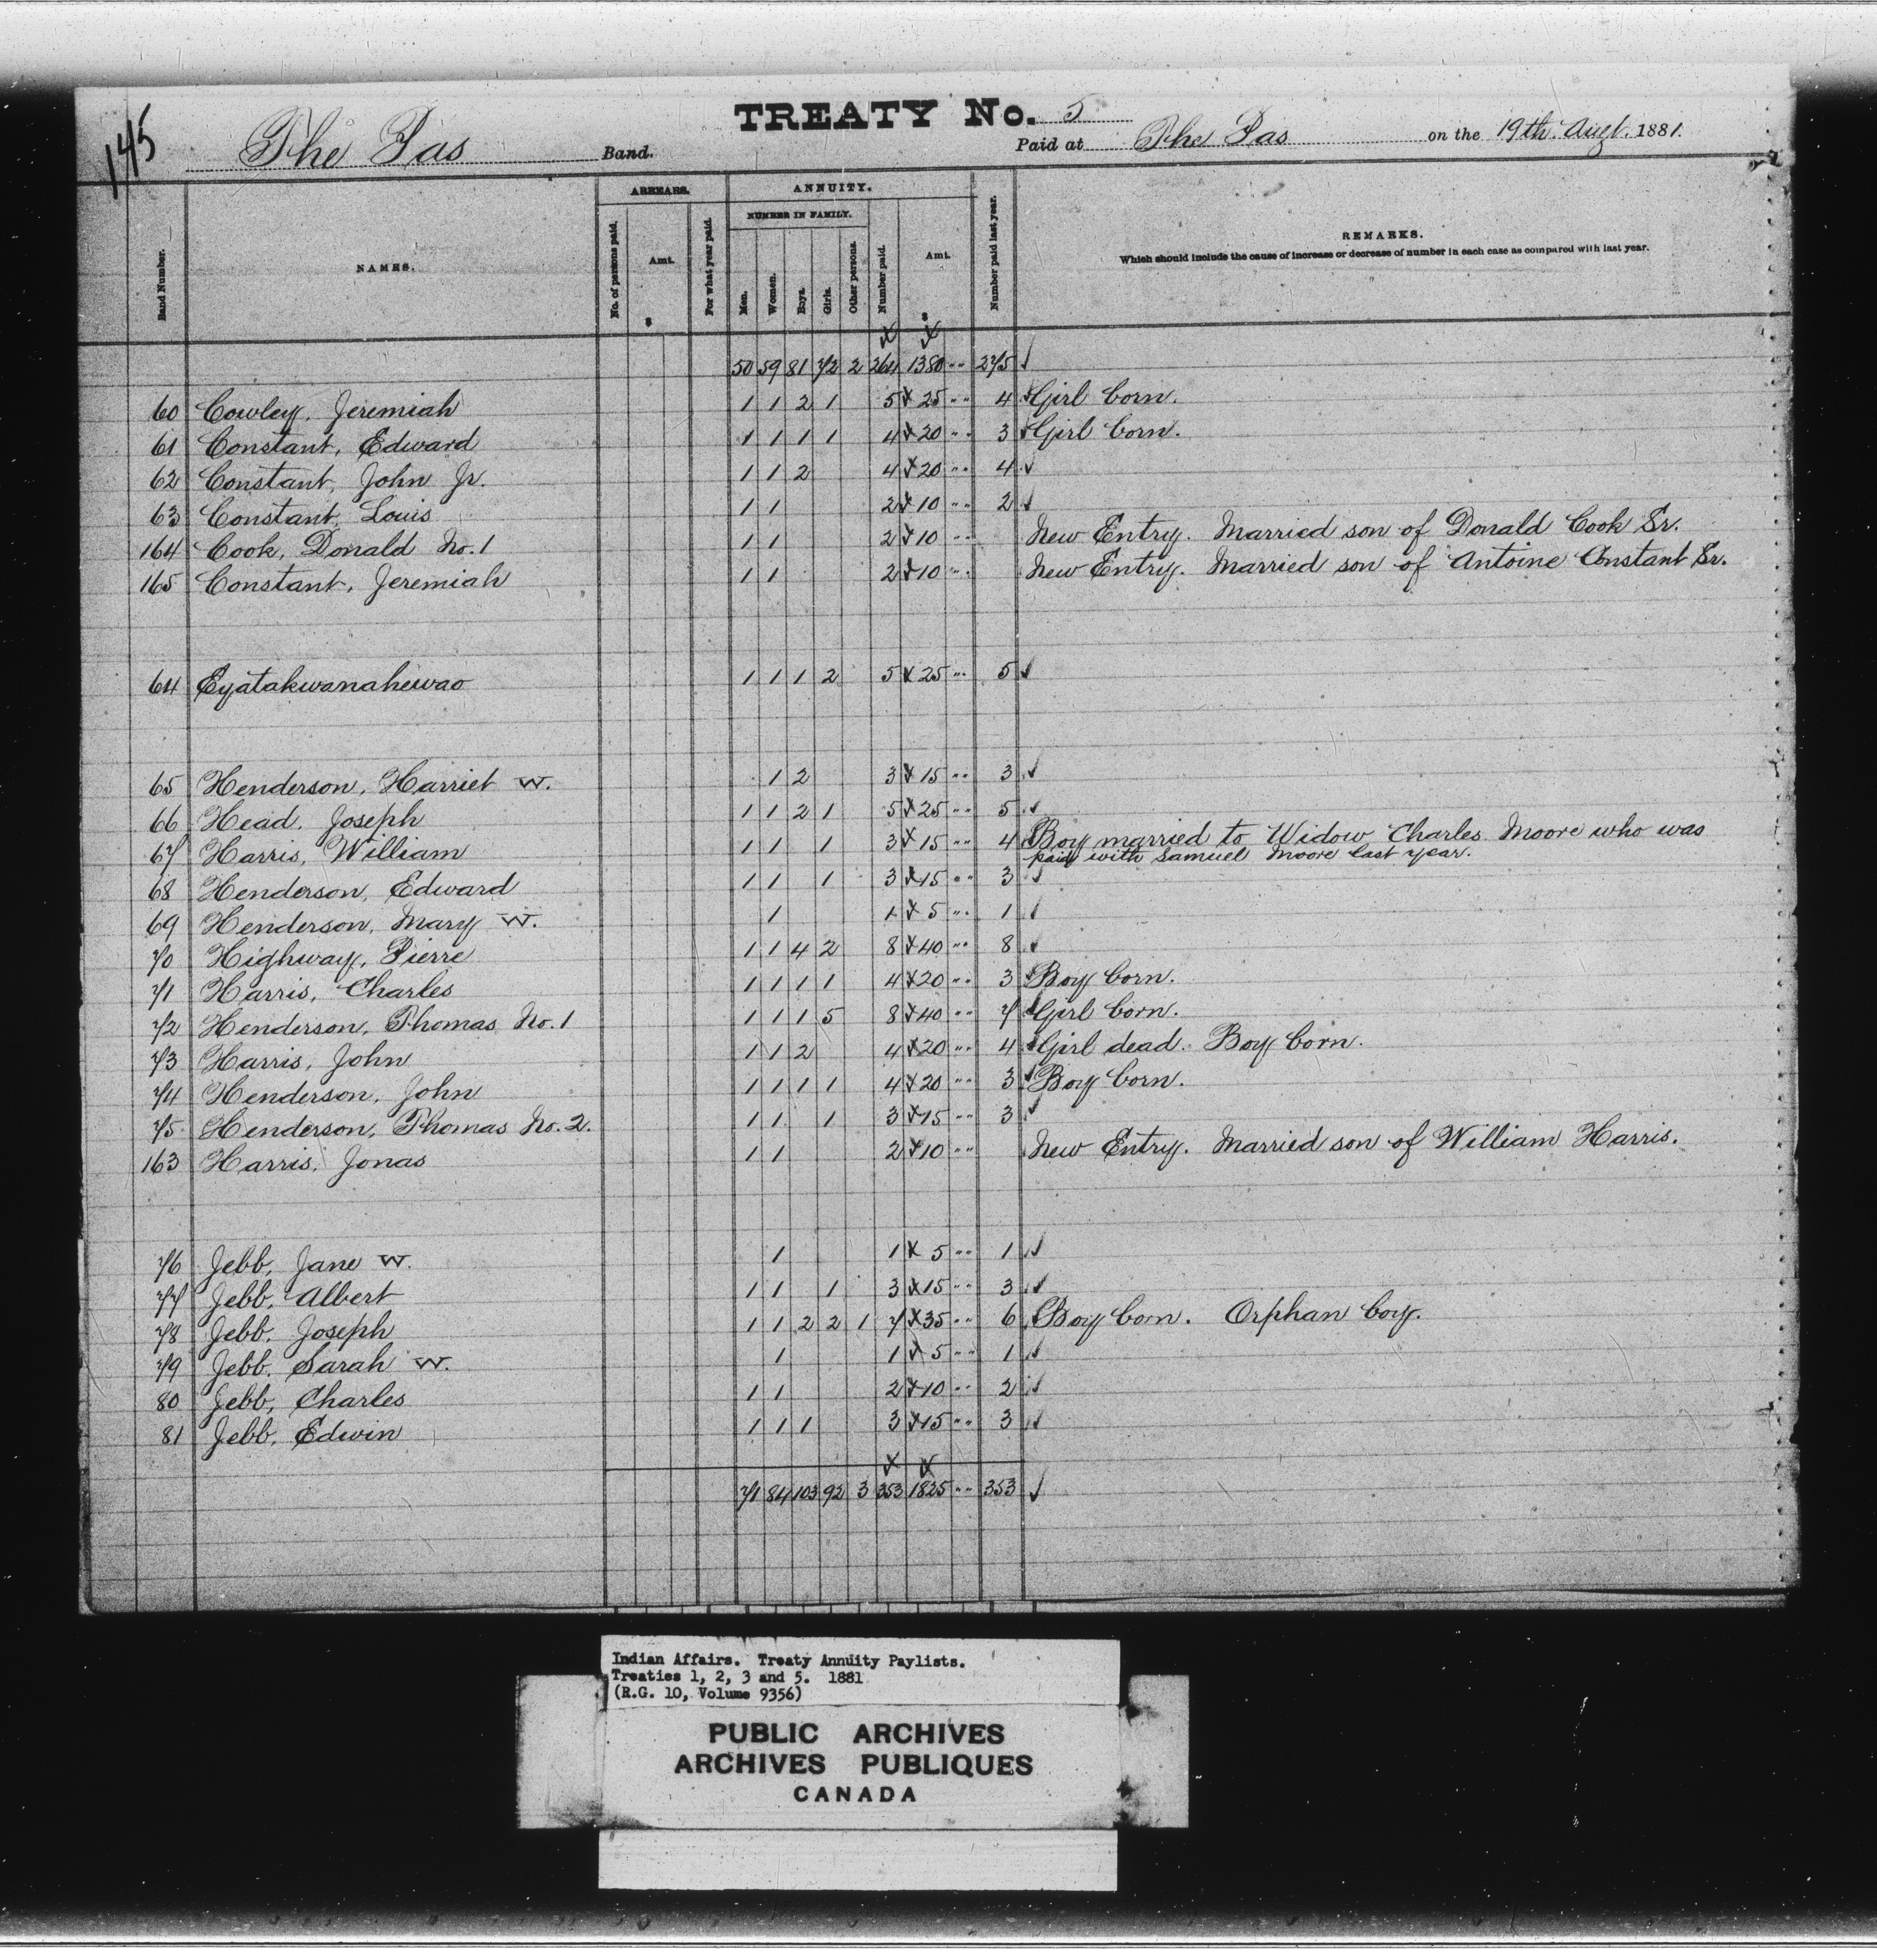 145
TREATY No. 5
The Pas Band. Paid at The Pas on the 19th. Augt. 1881.
ARREARS. ANNUITY.
NUMBER IN FAMILY.
Band Number. NAMES. No. of persons paid. Amt. For what year paid. Men. Women. Boys. Girls. Other persons. Number paid. Amt. Number paid last year. REMARKS.
Which should include the cause of increase or decrease of number in each case as compared with last year.
$ $
50 59 81 72 2 264 1380 " 275 ✓
60 Cowley, Jeremiah 1 1 2 1 5 25 " 4 Girl born.
61 Constant, Edward 1 1 1 1 4 20 " 3 Girl born.
62 Constant, John Jr. 1 1 2 4 20 " 4 ✓
63 Constant, Louis 1 1 2 10 " 2 ✓
164 Cook, Donald No. 1 1 1 2 10 " New Entry. Married son of Donald Cook Sr.
165 Constant, Jeremiah 1 1 2 10 " New Entry. Married son of Antoine Constant Sr.
64 Eyatakwanahewao 1 1 1 2 5 25 " 5 ✓
65 Henderson, Harriet W. 1 2 3 15 " 3 ✓
66 Head, Joseph 1 1 2 1 5 25 " 5 ✓
67 Harris, William 1 1 1 3 15 " 4 Boy married to Widow Charles Moore who was
paid with Samuel Moore last year.
68 Henderson, Edward 1 1 1 3 15 " 3 ✓
69 Henderson, Mary W. 1 1 5 " 1 ✓
70 Highway, Pierre 1 1 4 2 8 40 " 8 ✓
71 Harris, Charles 1 1 1 1 4 20 " 3 Boy born.
72 Henderson, Thomas No. 1 1 1 1 5 8 40 " 7 Girl born.
73 Harris, John 1 1 2 4 20 " 4 Girl dead. Boy born.
74 Henderson, John 1 1 1 1 4 20 " 3 Boy born.
75 Henderson, Thomas No. 2. 1 1 1 3 15 " 3 ✓
163 Harris, Jonas 1 1 2 10 " New Entry. Married son of William Harris.
76 Jebb, Jane W. 1 1 5 " 1 ✓
77 Jebb, Albert 1 1 1 3 15 " 3 ✓
78 Jebb, Joseph 1 1 2 2 1 7 35 " 6 Boy born. Orphan boy.
79 Jebb, Sarah W. 1 1 5 " 1 ✓
80 Jebb, Charles 1 1 2 10 " 2 ✓
81 Jebb, Edwin 1 1 1 3 15 " 3 ✓
71 84 103 92 3 353 1825 " 353 ✓
Indian Affairs. Treaty Annuity Paylists.
Treaties 1, 2, 3 and 5. 1881
(R.G. 10, Volume 9356)
PUBLIC ARCHIVES
ARCHIVES PUBLIQUES
CANADA